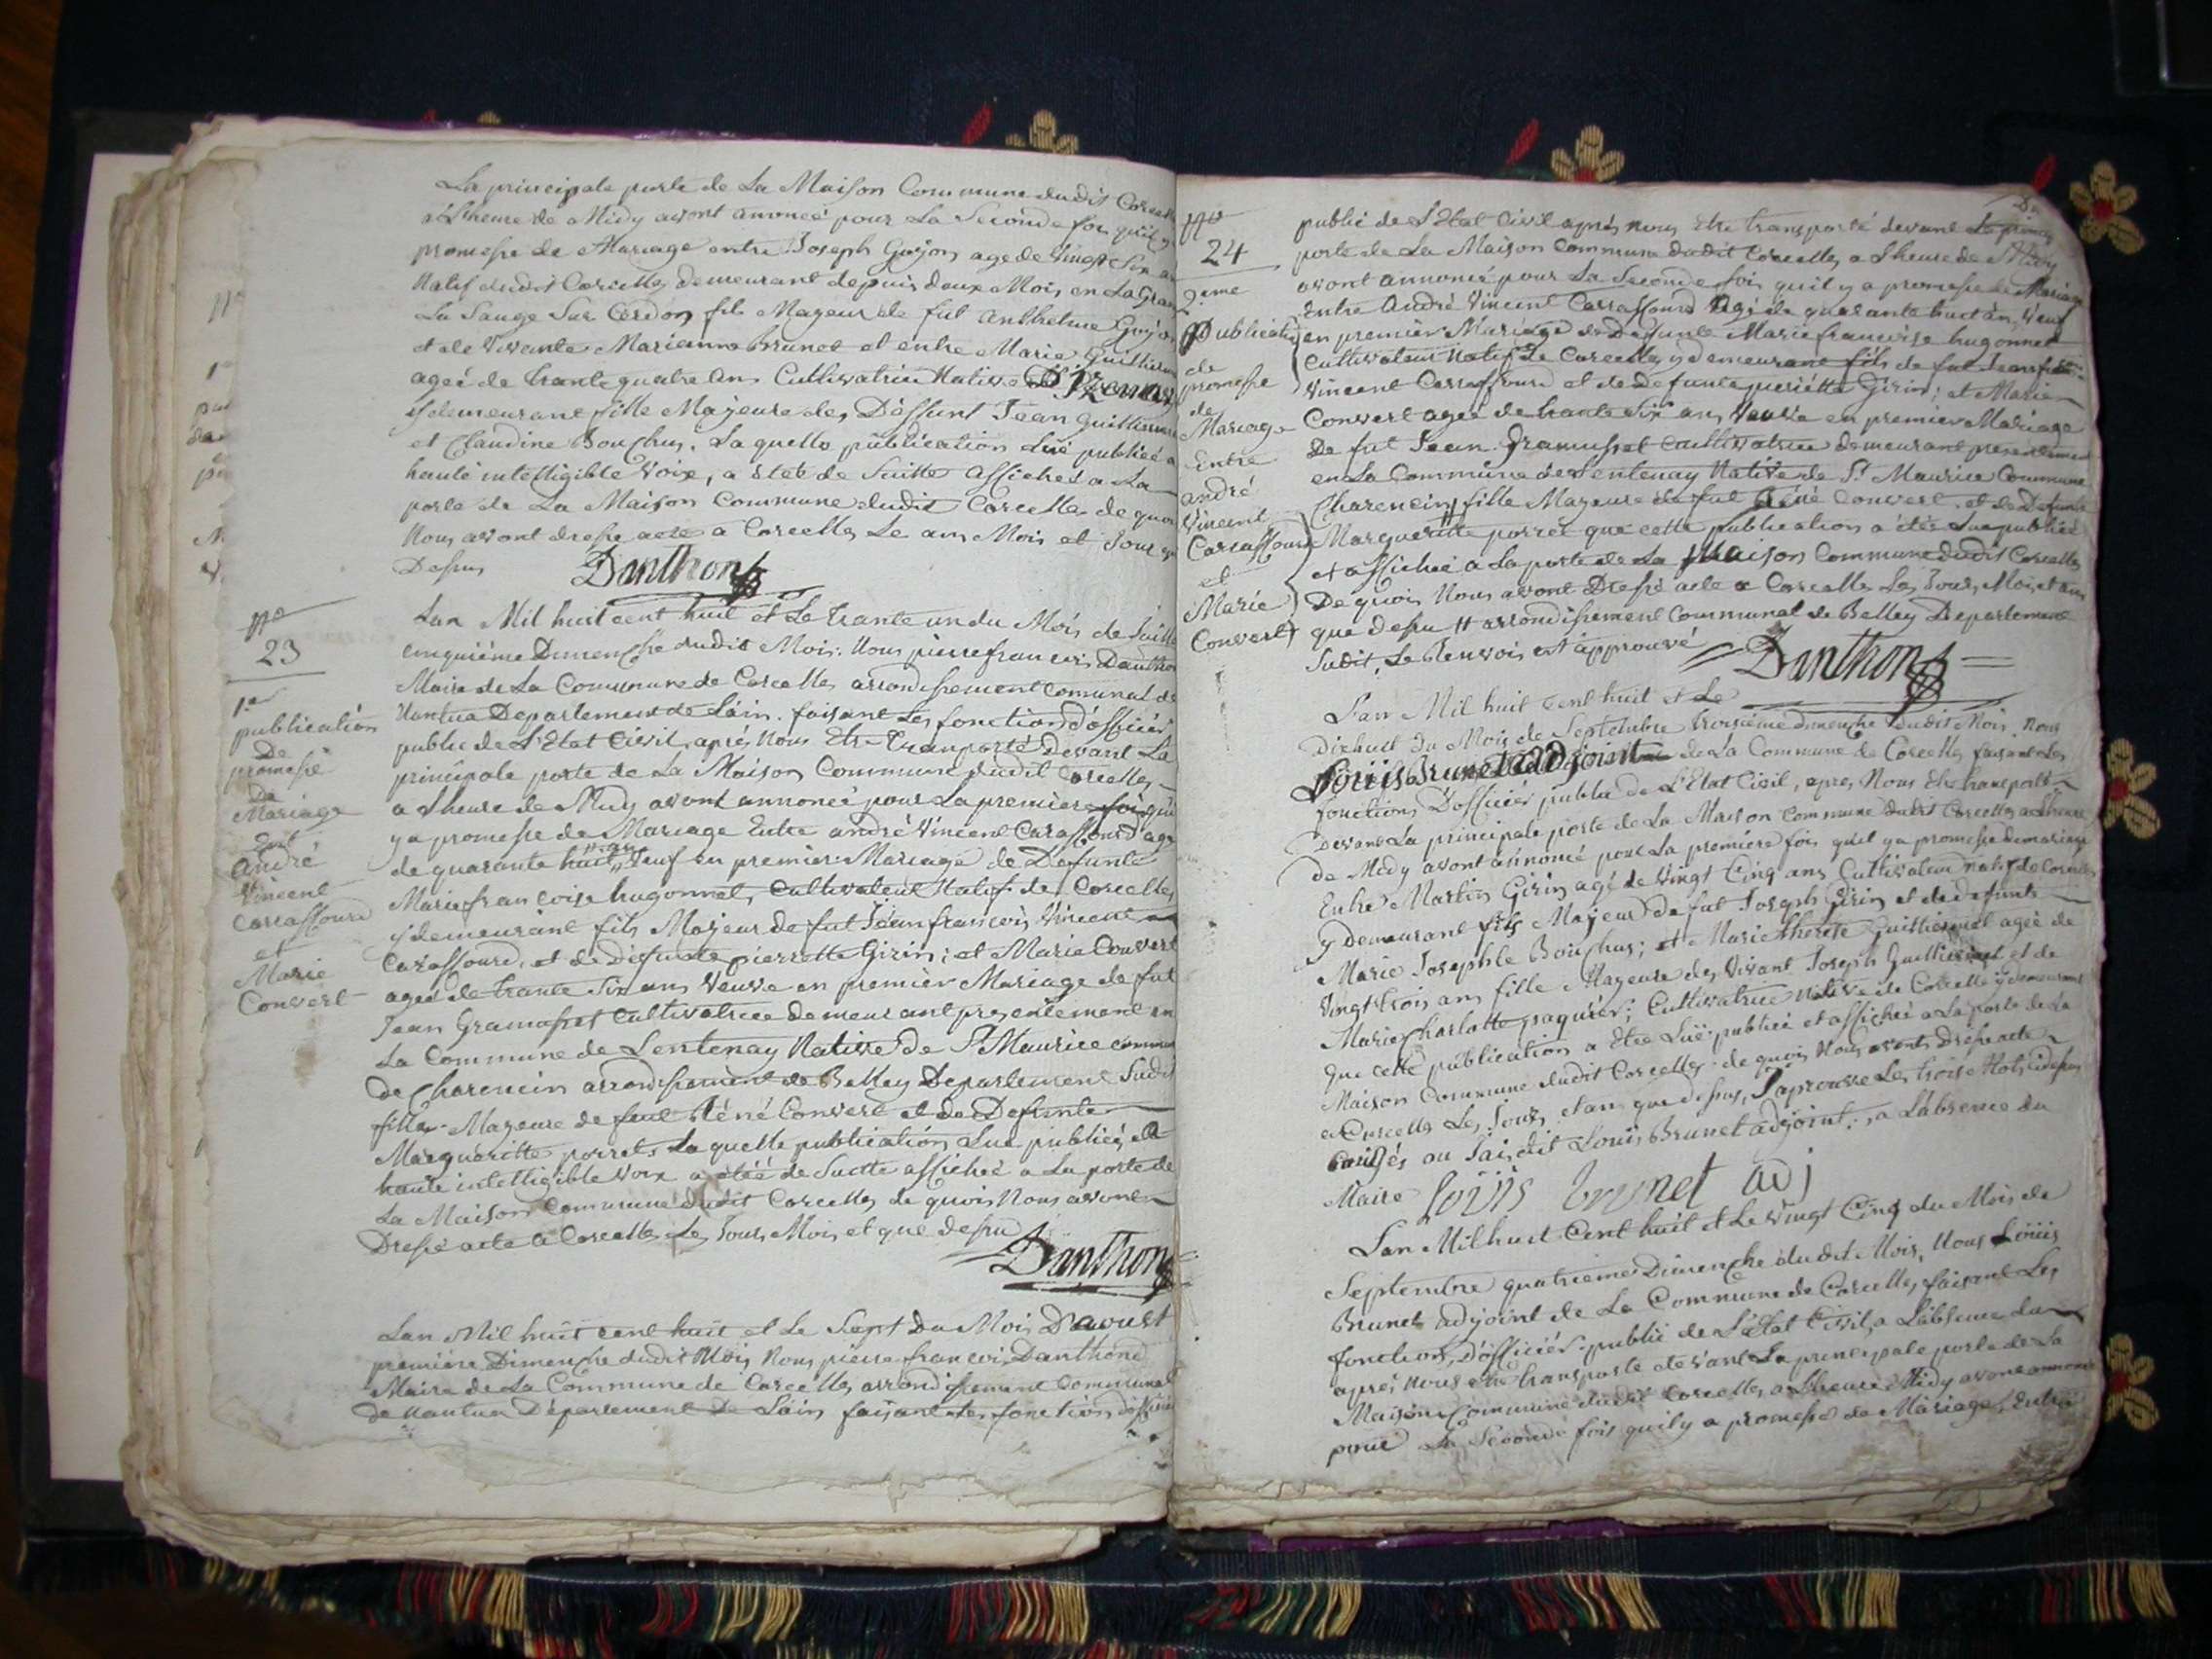 La principale porte de La Maison Commune dudit
a L'heure de Midy avont annoncé pour La Seconde fois quil y
promesse de Mariage entre Joseph Guyon age de Vingt Six
Natif dudit Corcelles demeurant depuis deux Mois en La
La Sange Sur Cerdon fils Mayeur de fut Anthelme Guyon
et de Vivante Marianne Brunet et entre Marie
ageé de trante quatre ans Cultivatrice Native
y demeurant fille Mayeure des Deffunt Jean
et Claudine Bouchus. La quelle publication Lüe publieé a
haute intelligible Voix, a eteé de Suitte affichet a La
porte de La Maison Commune dudit Corcelles de quoi
Nous avont dresse acte a Corcelles Le an Mois et Jour que
Dessus
Danthon
No
23
1re
publication
De
promesse
De
Mariage
Ent
André
Vincent
Carassourd
et
Marie
Convert
Lan Mil huit cent huit et Le trante un du Mois de Juillet
cinquième Dimenche dudit Mois. Nous pierre francois Danthon
Maire de La Commune de Corcelles arrondissement comunal de
Nantua Departement de Lain. faisant Les fonction d'officier
public de L'Etat Civil, aprés Nous Etre Transporté Devant La
principale porte de La Maison Commune dudit Corcelles
a L'heure de Midy avont annoncé pour La première fois qu'il
y a promesse de Mariage Entre andré Vincent Carassourd age
de quarante huit an Veuf en premier Mariage de Defunte
Marie francoise hugonnet, Cultivateur Natif de Corcelles
y demeurant fils Mayeur de fut Jean francois Vincent
Carassourd, et de Defunte pierrette Girin; et Marie Convert
ageé de trante Six ans Veuve en premier Mariage de fut
Jean Gramusset Cultivatrice demeurant presentement en
La Commune de Lentenay Native de St Maurice commune
de Charencin arrondissement de Belley Departement Sudit
fille Mayeure de feut Réné Convert et de Defunte
Margueritte porret, La quelle publication Lue publieé, a
haute intelligible Voix a eteé de Suitte affichée a La porte de
La Maison Commune dudit Corcelles de quoi Nous avont
Dressé acte a Corcelles Les Jour, Mois et que dessu
Danthon
Lan Mil huit cent huit et Le Sept Du Mois D'avoust
première Dimenche dudit Mois Nous pierre francois Danthond
Maire de La Commune de Corcelles arrondissement Communal
de Nantua Département de Lain faisant Les fonction d'officier
No
24
2eme
Publication
de
promesse
de
Mariage
Entre
andré
Vincent
Carrassourd
et
Marie
Convert
public de L'Etat Civil aprés nous Etre transporté devant La
porte de La Maison Commune dudit Corcelles a L'heure de Midy
avont annoncé pour La Seconde fois qu'il y a promesse de Mariage
Entre André Vincent Carrassourd Agé de quarante huit an, Veuf
en premièr Mariage de Defunte Marie francoise hugonnet
Cultivateur Natif de Corcelles y demeurant fils de fut Jean
Vincent Carrassourd et de Defunte Girin; et Marie
Convert ageé de trante Six ans Veuve en premier Mariage
De fut Jean Gramusset cultivatrice demeurant presentement
en La Commune de Lentenay Native de St Maurice Commune
Charencin fille Mayeure de fut Réné Convert. et de Defunte
Margueritte porret que cette publication a étée Lue publieé
et affichée a La porte de La Maison Commune dudit Corcelles
De quoi Nous avont Dressé acte a Corcelles Les Jour, Mois, et an
que dessu # arrondissement Communal de Belley Departement
Sudit, Le Renvois est approuvé
Danthon
L'an Mil huit Cent huit et Le
Dixhuit du Mois de Septembre troisième dimenche dudit Mois. Nous
Loüis Brunet adjoint de La Commune de Corcelles faisant Les
fonctions D'officier public de L'Etat Civil, apres Nous Etre transporté
Devant La principale porte de La Maison Commune dudit Corcelles a L'heure
de Midy avont annoncé pour La première fois, quil y a promesse de mariage
Entre Martin Girin agé de Vingt Cinq ans Cultivateur Natif de Corcelles
y demeurant fils Mayeur de fut Joseph Girin et de defunte
Marie Josephte Bouchus; et Marie Thérèse Guillermet ageé de
Vingt trois ans fille Mayeure des Vivant Joseph Guillermet et de
Marie Charlotte; Cultivatrice Native de Corcelle y demeurant
que cette publication a etée Luë publieé et affichée a La porte de La
Maison Commune dudit Corcelles. de quoi Nous avont dressé acte
a Corcelles Les Jours et an que dessus, J'aprouve Les trois Mots cidessus
au Saisdit Louïs Brunet adjoint, a L'absence du
Maire Loüis brunet adj
Lan Mil huit Cent huit et Le Vingt Cinq du Mois de
Septembre quatrieme Dimenche dudit Mois, Nous Loüis
Brunet adjoint de La Commune de Corcelles, faisant Les
fonction, D'officiér public de L'Etat Civil, a L'absence du
aprés nous etre transporté devant La principale porte de La
Maison Commune dudit Corcelles a L'heure Midy avont annoncé
pour La Seconde fois quil y a promesse de Mariage, Entre